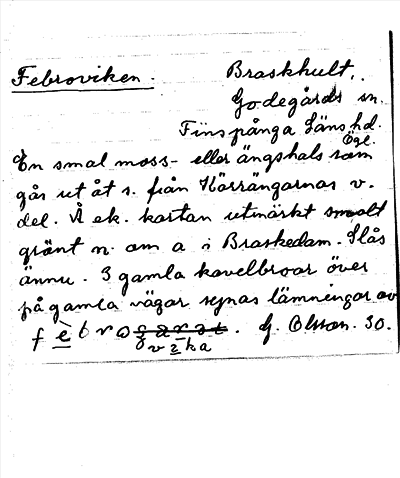 Febroviken. Braskhult,
Godegårds sn.
Finspånga Läns hd.
Ögl.
En smal moss- eller ängshals som
går ut åt s. från Kärrängarnas v.
del. Å ek. kartan utmärkt smalt
grönt n. om a i Braskedam. Slås
ännu. 3 gamla kavelbroar över
på gamla vägar synas lämningar av
febro v i ka. G. Olsson. 30.